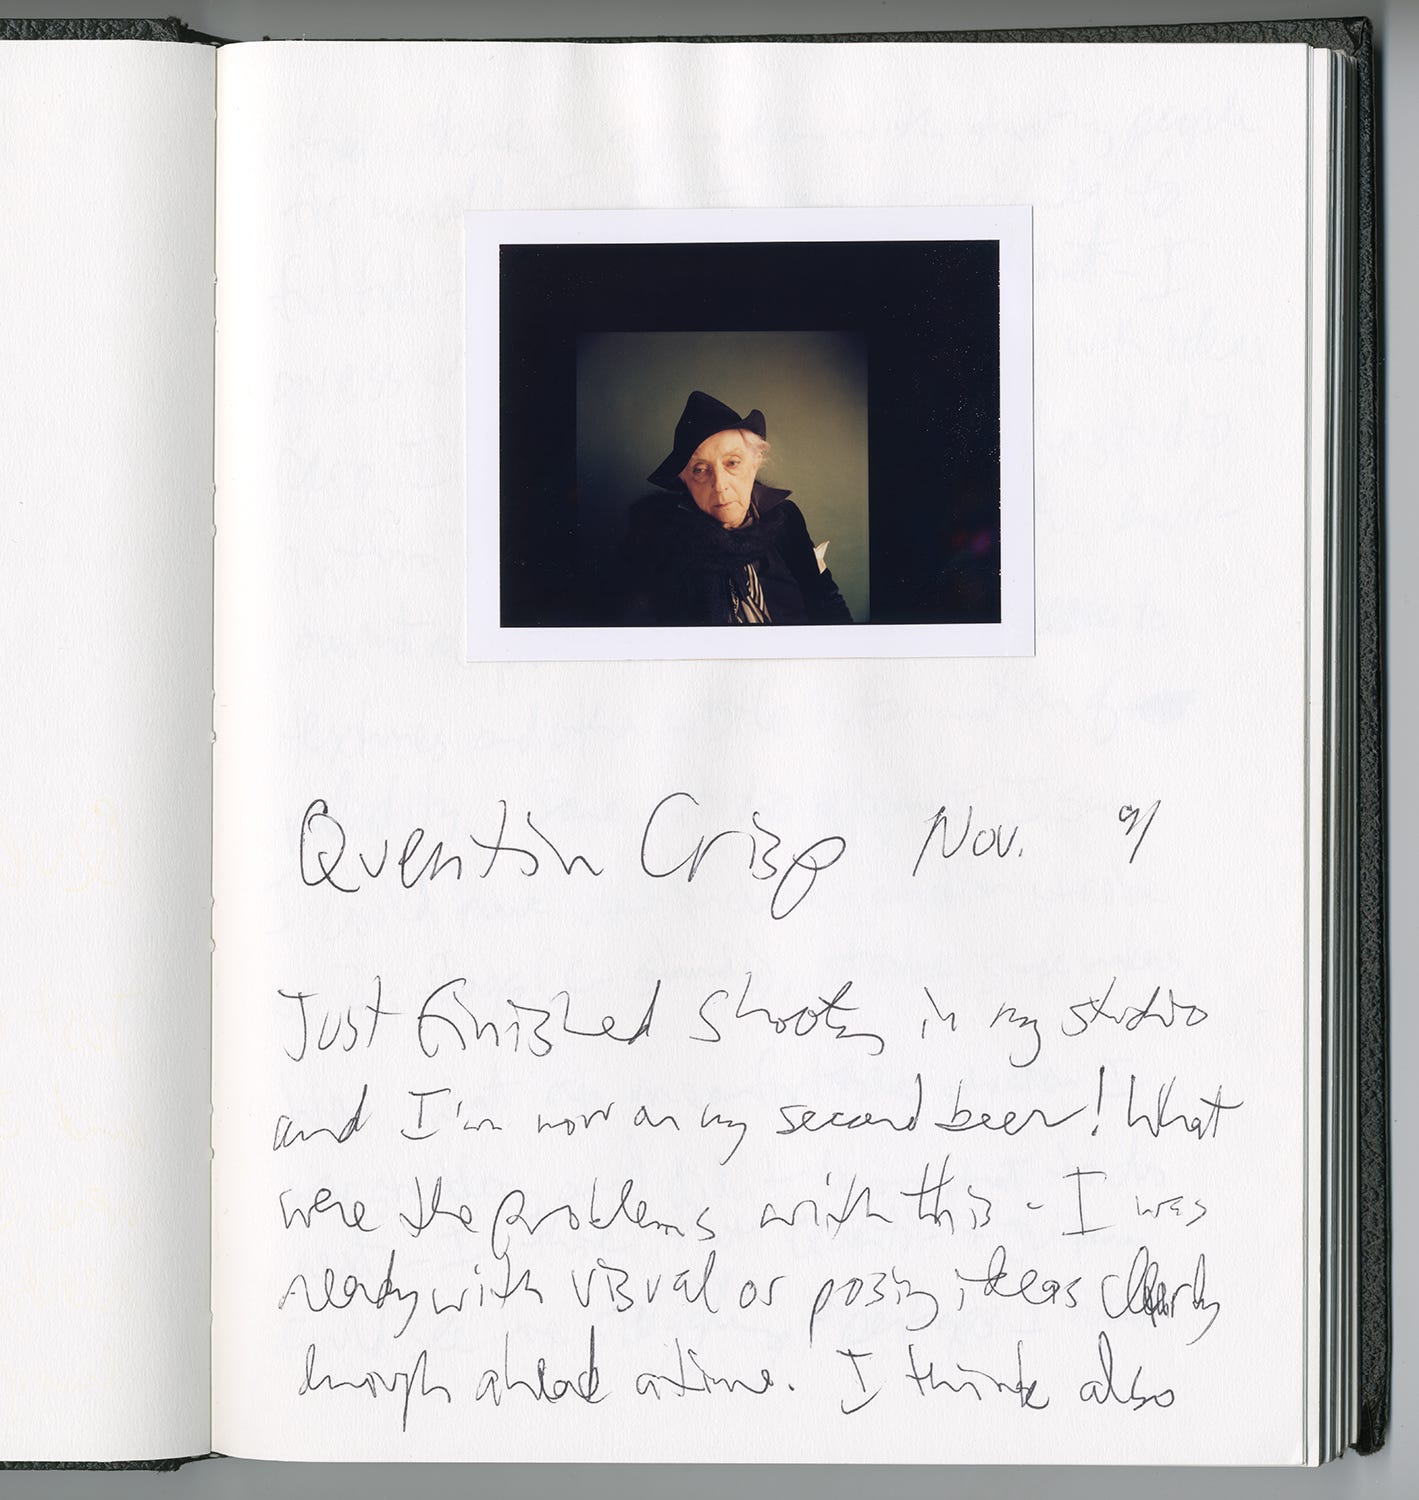 Quentin Crisp Nov. 91
Just finished shooting in my studio
and I'm now on my second beer! What
were the problems with this - I was
ready with visual or posing ideas clearly
enough ahead a time. I think also